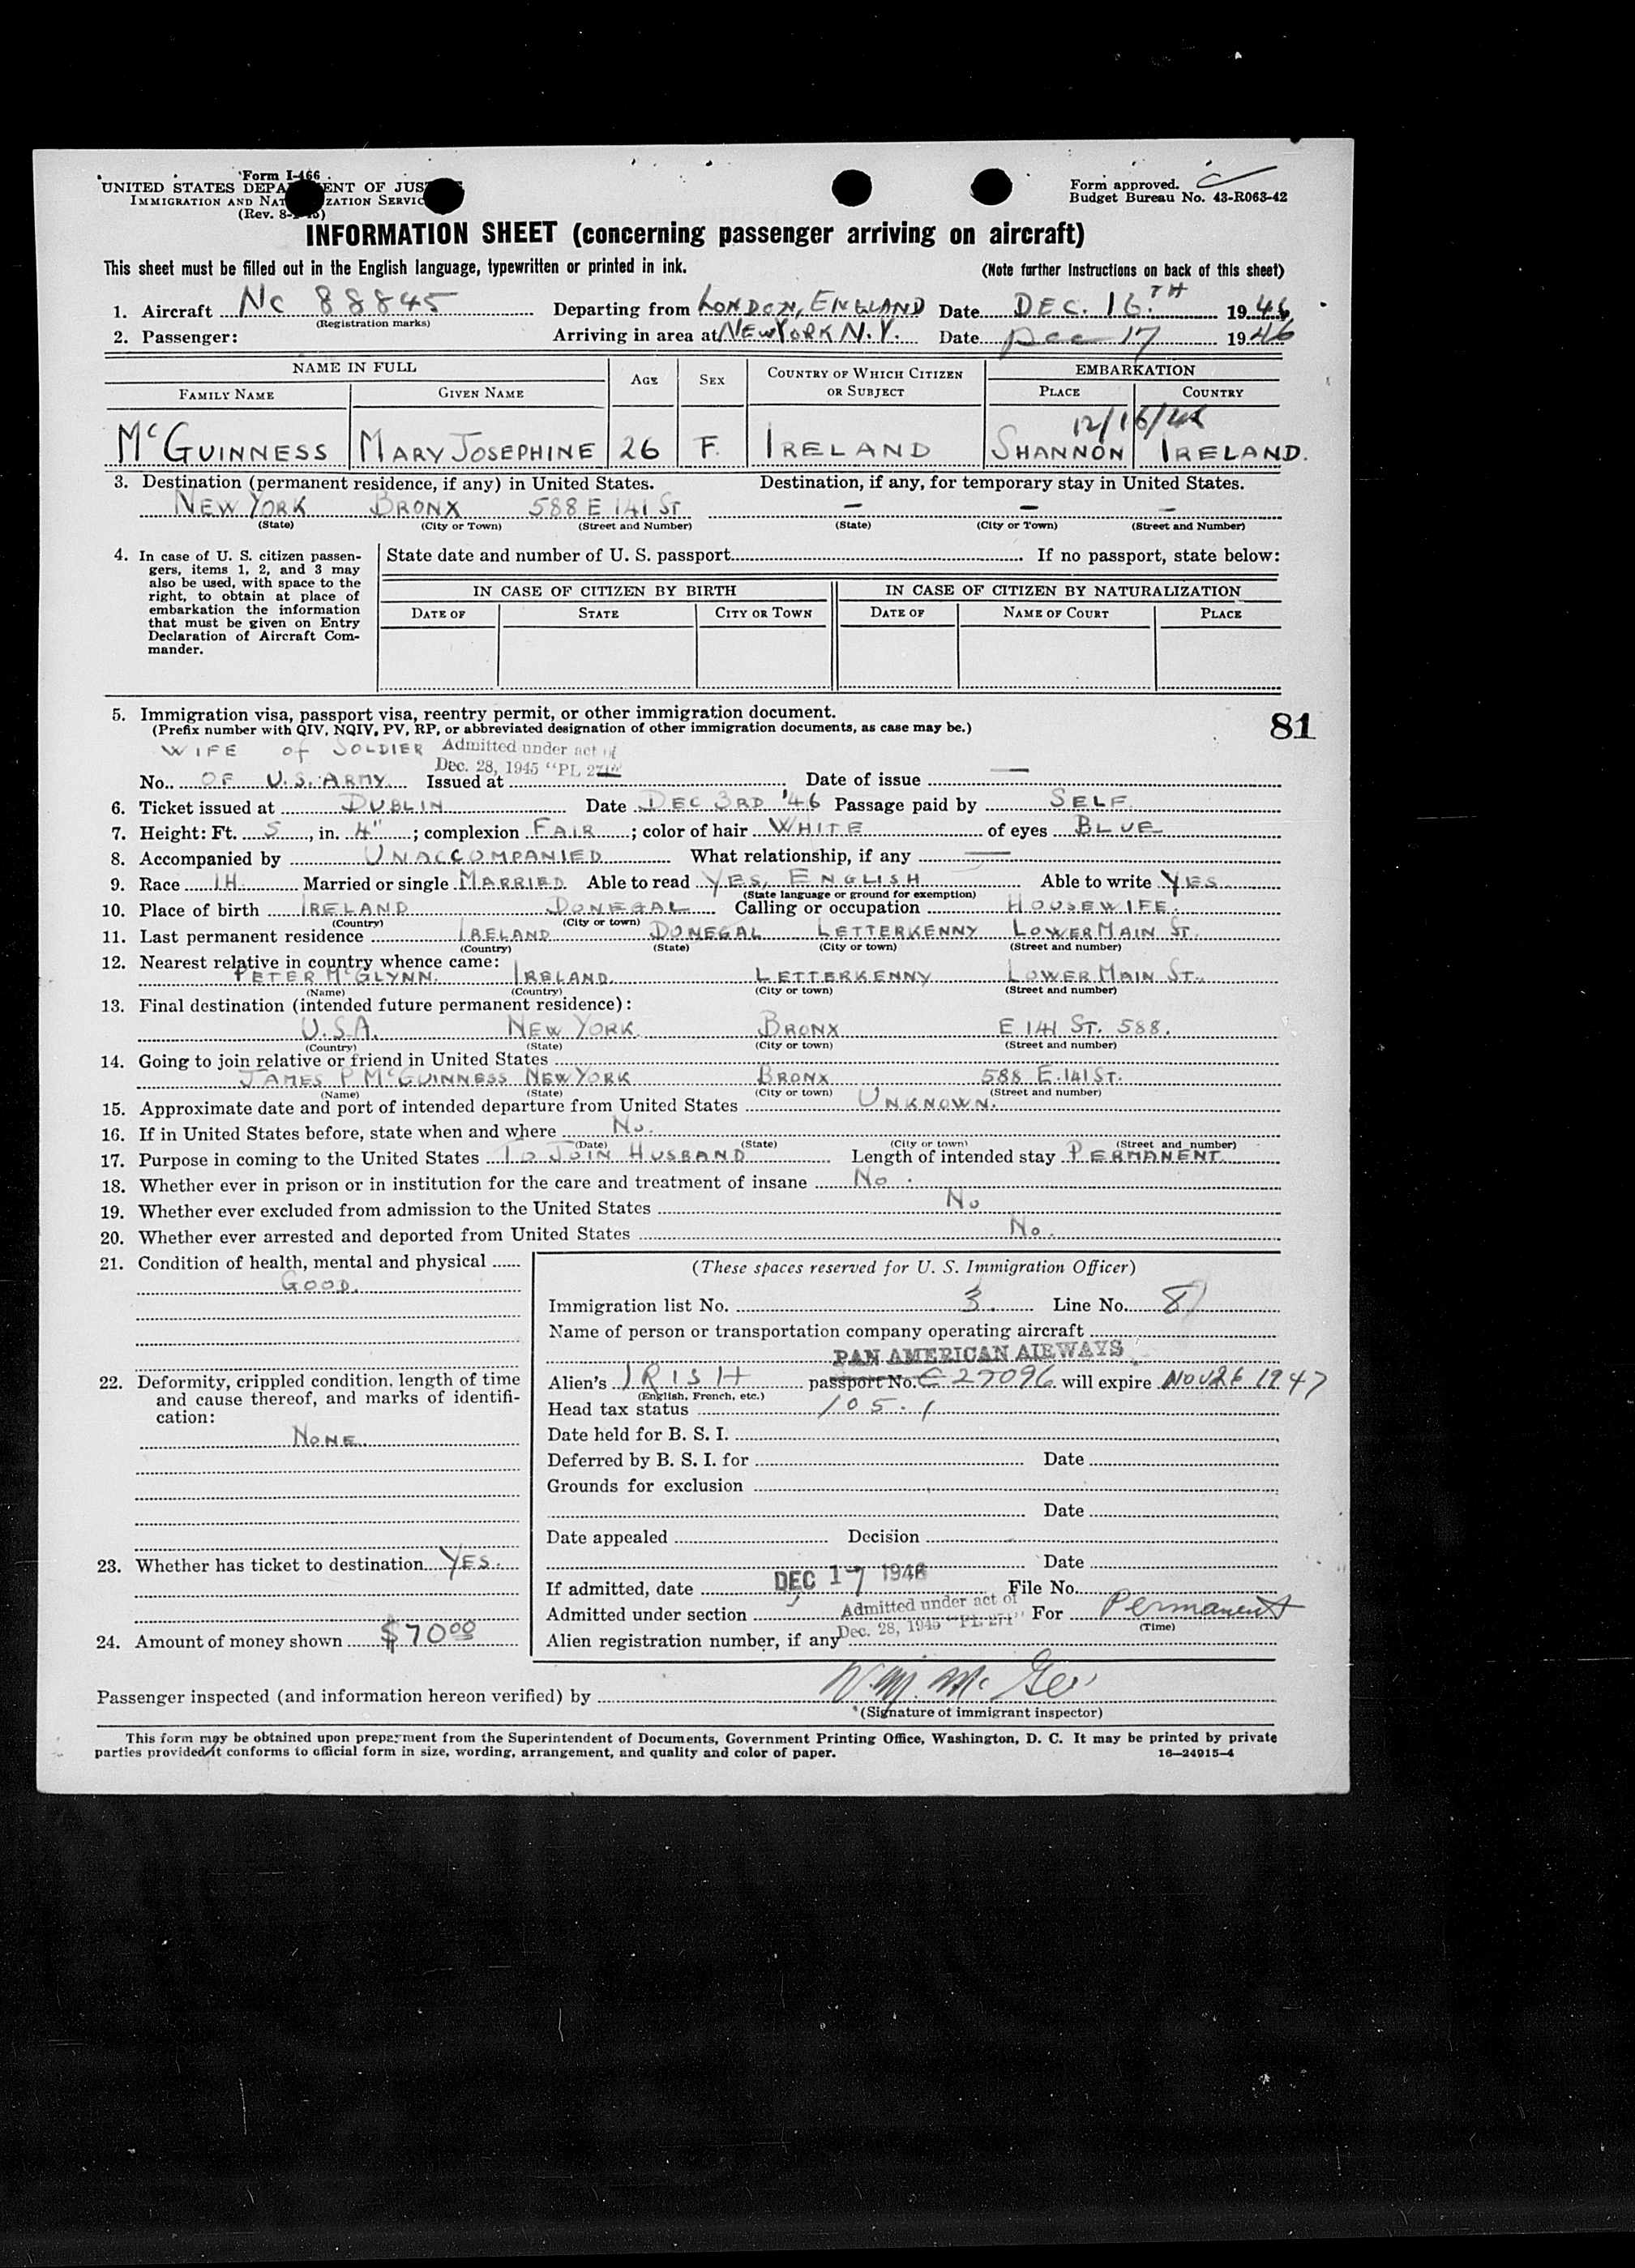 Form I-466
UNITED STATES DEPARTMENT OF JUSTICE
IMMIGRATION AND NATURALIZATION SERVICE
(Rev. 8-
Form approved.
Budget Bureau No. 43-R063-42
INFORMATION SHEET (concerning passenger arriving on aircraft)
This sheet must be filled out in the English language, typewritten or printed in ink. (Note further instructions on back of this sheet)
1. Aircraft NC 88845 Departing from LONDON, ENGLAND Date DEC. 16.TH 1946
(Registration marks)
2. Passenger: Arriving in area at NEW YORK N.Y. Date Dec 17 1946
NAME IN FULL AGE SEX COUNTRY OF WHICH CITIZEN OR SUBJECT EMBARKATION
FAMILY NAME GIVEN NAME PLACE COUNTRY
12/16/46
McGUINNESS MARY JOSEPHINE 26 F. IRELAND SHANNON IRELAND.
3. Destination (permanent residence, if any) in United States. Destination, if any, for temporary stay in United States.
NEW YORK BRONX 588 E 141 ST — — —
(State) (City or Town) (Street and Number) (State) (City or Town) (Street and Number)
4. In case of U. S. citizen passengers, items 1, 2, and 3 may also be used, with space to the right, to obtain at place of embarkation the information that must be given on Entry Declaration of Aircraft Commander.
State date and number of U. S. passport If no passport, state below:
IN CASE OF CITIZEN BY BIRTH IN CASE OF CITIZEN BY NATURALIZATION
DATE OF STATE CITY OR TOWN DATE OF NAME OF COURT PLACE
5. Immigration visa, passport visa, reentry permit, or other immigration document.
81
(Prefix number with QIV, NQIV, PV, RP, or abbreviated designation of other immigration documents, as case may be.)
WIFE of SOLDIER Admitted under act of
Dec. 28, 1945 "PL 271"
No. OF U.S. ARMY Issued at Date of issue —
6. Ticket issued at DUBLIN Date DEC 3RD '46 Passage paid by SELF
7. Height: Ft. 5, in. 4"; complexion FAIR; color of hair WHITE of eyes BLUE
8. Accompanied by UNACCOMPANIED What relationship, if any —
9. Race IH Married or single MARRIED Able to read YES, ENGLISH Able to write YES
(State language or ground for exemption)
10. Place of birth IRELAND DONEGAL Calling or occupation HOUSEWIFE.
(Country) (City or town)
11. Last permanent residence IRELAND DONEGAL LETTERKENNY LOWER MAIN ST.
(Country) (State) (City or town) (Street and number)
12. Nearest relative in country whence came:
PETER McGLYNN. IRELAND. LETTERKENNY LOWER MAIN ST.
(Name) (Country) (City or town) (Street and number)
13. Final destination (intended future permanent residence):
U.S.A. NEW YORK BRONX E 141 ST. 588.
(Country) (State) (City or town) (Street and number)
14. Going to join relative or friend in United States
JAMES P McGUINNESS NEW YORK BRONX 588 E. 141 ST.
(Name) (State) (City or town) (Street and number)
15. Approximate date and port of intended departure from United States UNKNOWN.
16. If in United States before, state when and where No.
(Date) (State) (City or town) (Street and number)
17. Purpose in coming to the United States TO JOIN HUSBAND Length of intended stay PERMANENT
18. Whether ever in prison or in institution for the care and treatment of insane No.
19. Whether ever excluded from admission to the United States No
20. Whether ever arrested and deported from United States No.
21. Condition of health, mental and physical
GOOD.
22. Deformity, crippled condition, length of time and cause thereof, and marks of identification:
NONE.
23. Whether has ticket to destination YES.
24. Amount of money shown $70 00
(These spaces reserved for U. S. Immigration Officer)
Immigration list No. 3. Line No. 8
Name of person or transportation company operating aircraft
PAN AMERICAN AIRWAYS
Alien's IRISH passport No. C 27096 will expire NOV 26 1947
(English, French, etc.)
Head tax status 105.1
Date held for B. S. I.
Deferred by B. S. I. for Date
Grounds for exclusion
Date
Date appealed Decision
Date
If admitted, date DEC 17 1946 File No.
Admitted under section Admitted under act of For Permanent
(Time)
Alien registration number, if any Dec. 28, 1945 "PL 271"
Passenger inspected (and information hereon verified) by
(Signature of immigrant inspector)
This form may be obtained upon prepayment from the Superintendent of Documents, Government Printing Office, Washington, D. C. It may be printed by private
parties provided it conforms to official form in size, wording, arrangement, and quality and color of paper. 16—24915-4